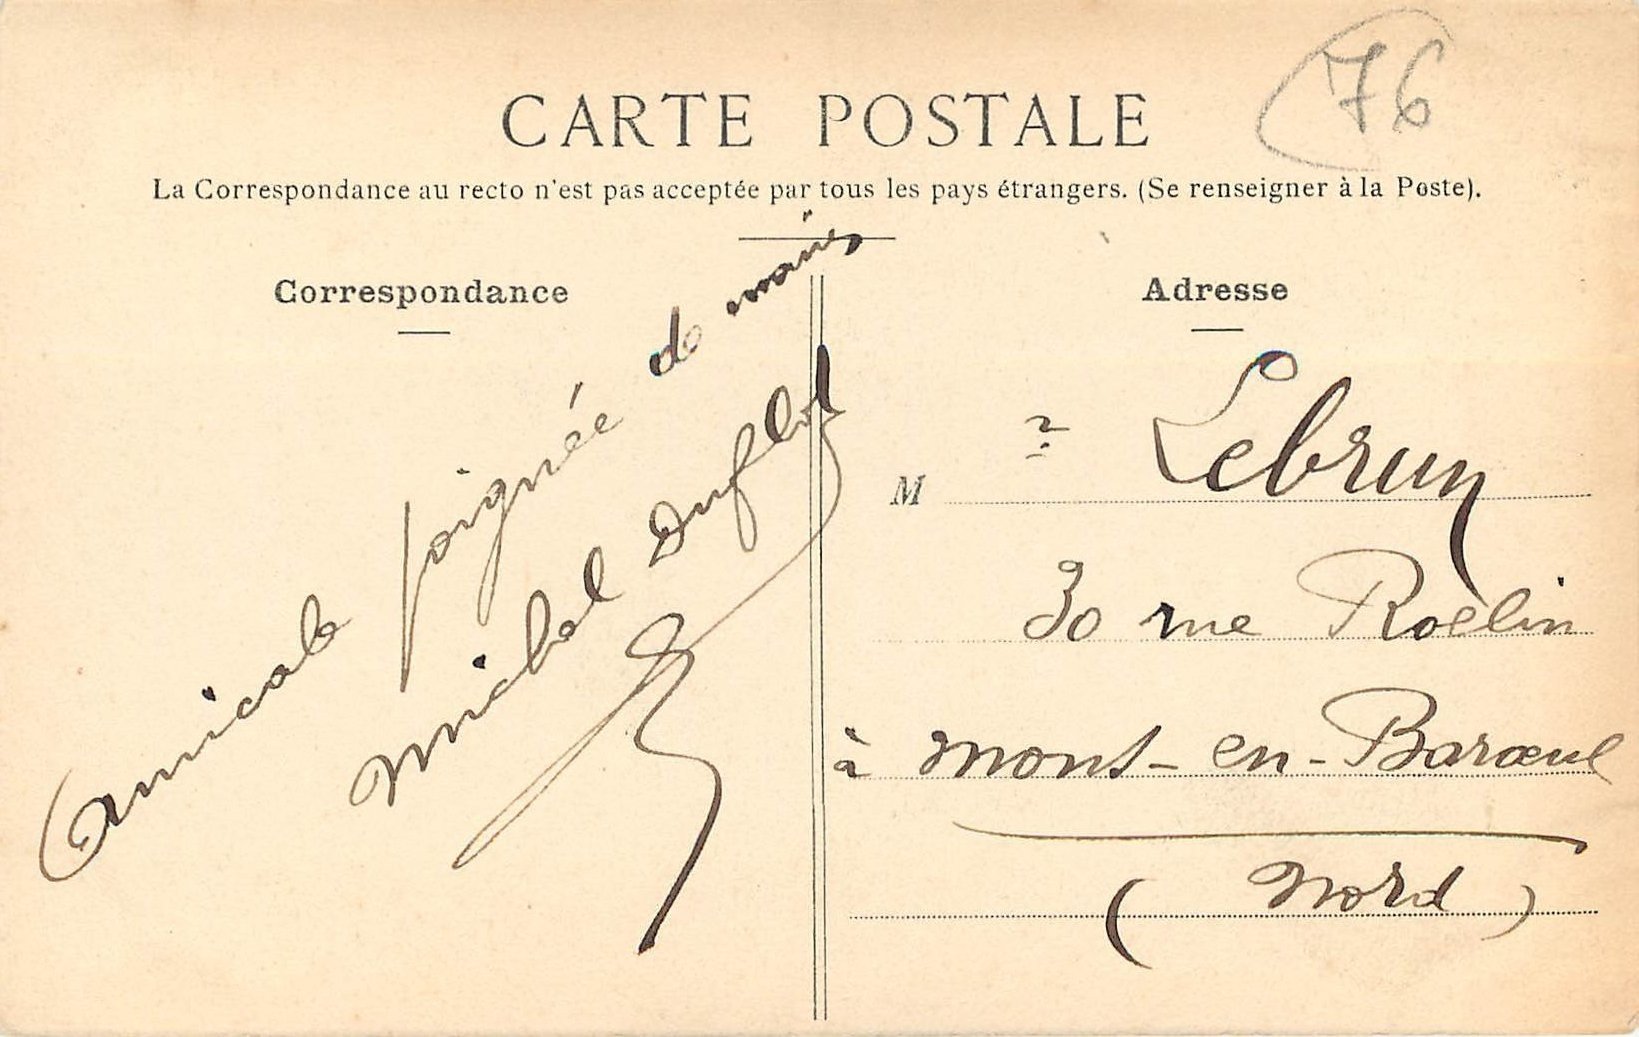 76
CARTE POSTALE
La Correspondance au recto n'est pas acceptée par tous les pays étrangers. (Se renseigner à la Poste).
Correspondance
Amicale poignée de mains
Michel Duflot
Adresse
M r Lebrun
30 rue Roëlin
à Mons-en-Barœul
(Nord)